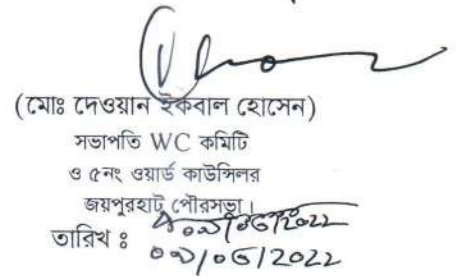 (মোঃ দেওয়ান ইকবাল হোসেন)
সভাপতি WC কমিটি
ও ৫নং ওয়ার্ড কাউন্সিলর
জয়পুরহাট পৌরসভা।
তারিখ ঃ ০৯/০৬/2022